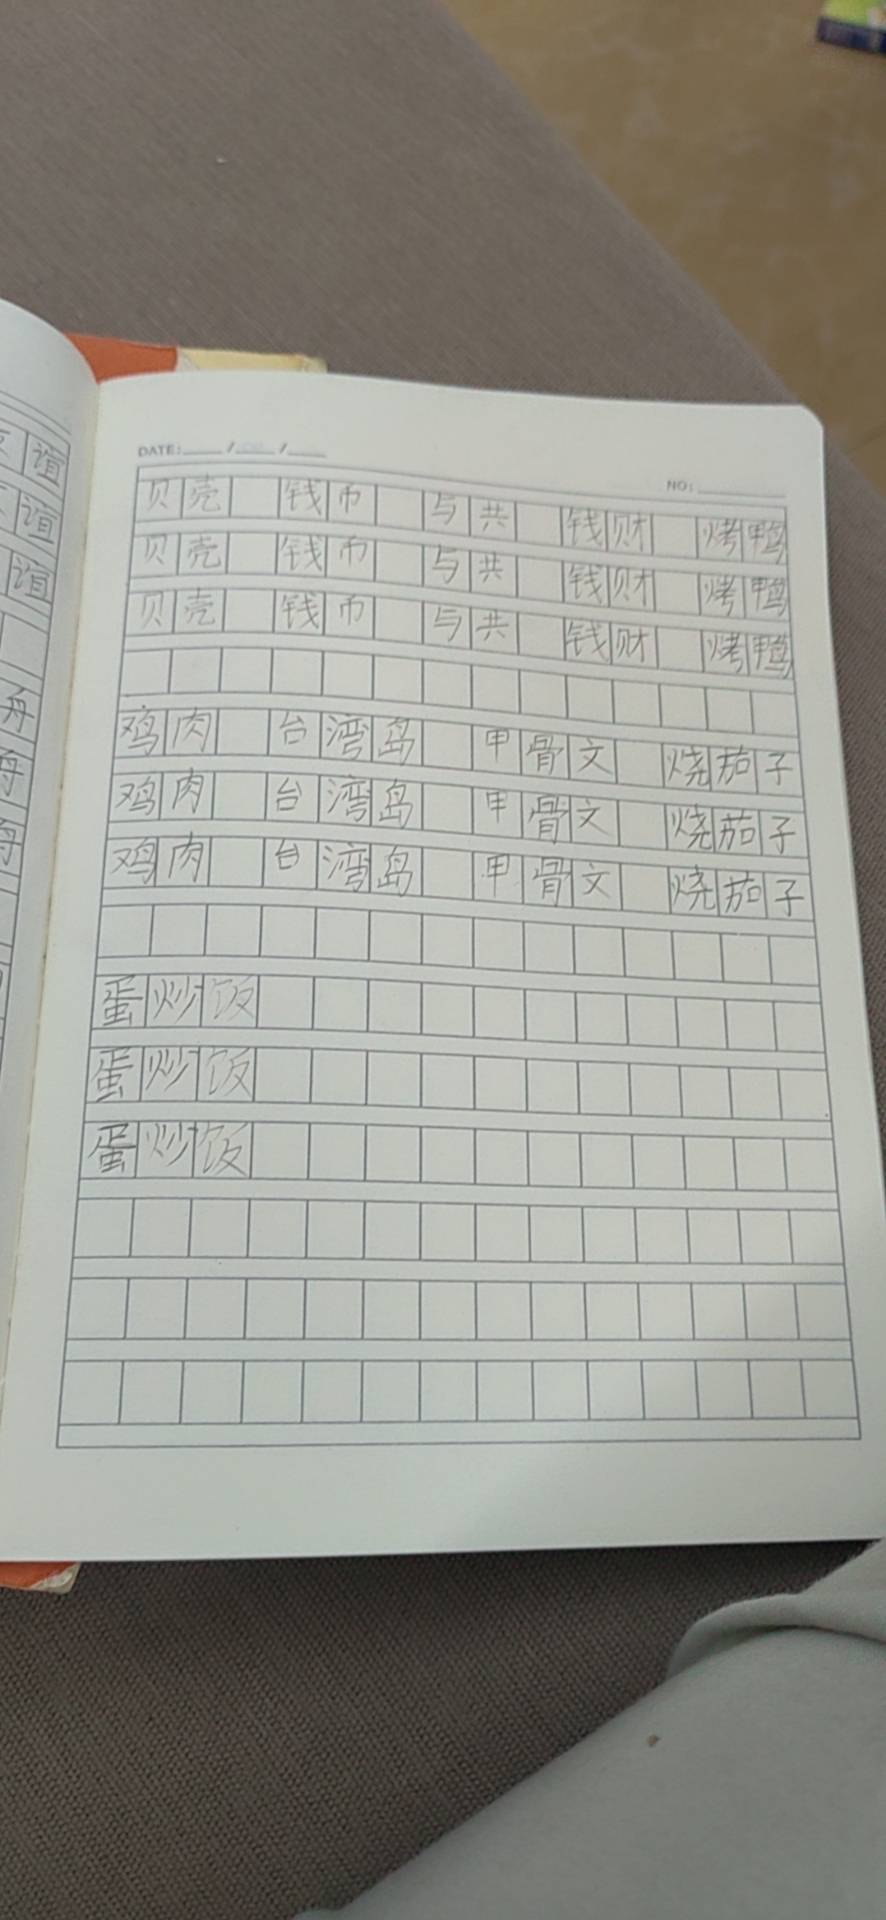 DATE: / /
NO:
贝壳 钱币 与共 钱财 烤鸭
贝壳 钱币 与共 钱财 烤鸭
贝壳 钱币 与共 钱财 烤鸭
鸡肉 台湾岛 甲骨文 烧茄子
鸡肉 台湾岛 甲骨文 烧茄子
鸡肉 台湾岛 甲骨文 烧茄子
蛋炒饭
蛋炒饭
蛋炒饭
谊
谊
谊
舟
舟
舟